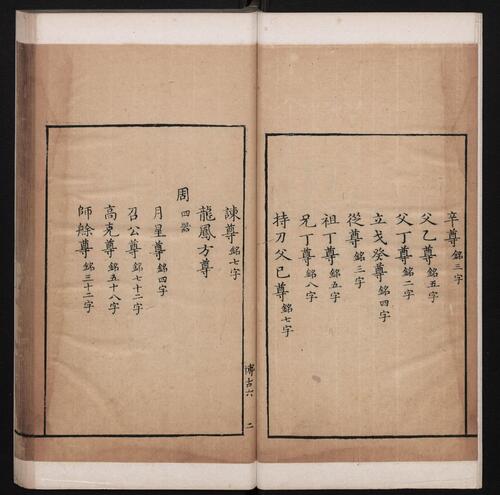 辛尊銘三字
父乙尊銘五字
父丁尊銘二字
立戈癸尊銘四字
從尊銘三字
祖丁尊銘五字
兄丁尊銘八字
持刀父己尊銘七字
博古六 二
諫尊銘七字
龍鳳方尊
周四器
月星尊銘四字
召公尊銘七十二字
高克尊銘五十八字
師艅尊銘三十二字